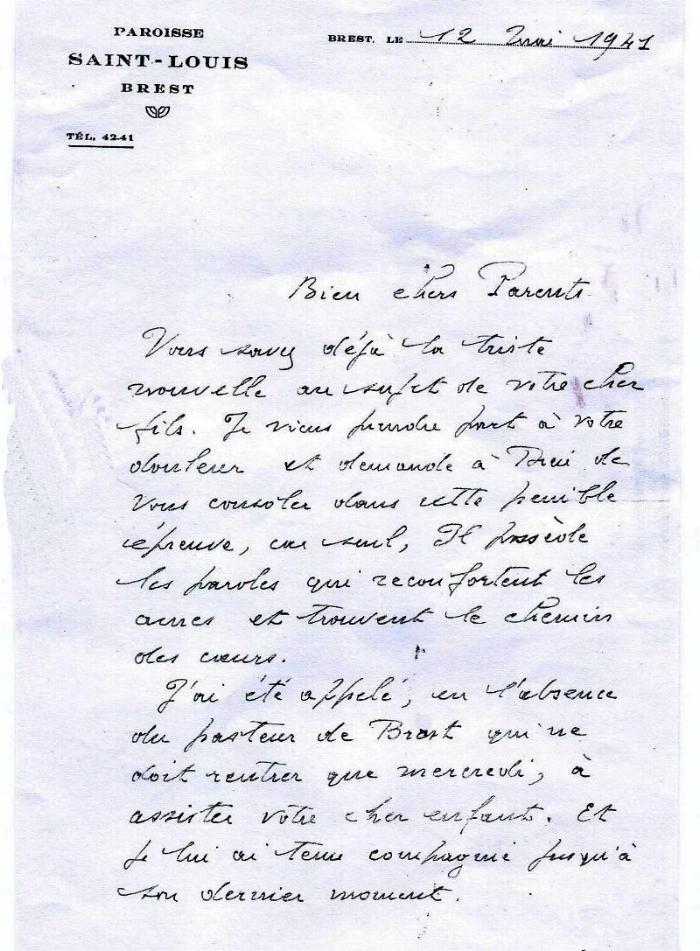 PAROISSE
SAINT-LOUIS
BREST
TÉL. 42-41
BREST, LE 12 Mai 1941
Bien chers Parents
Vous savez déjà la triste
nouvelle au sujet de votre cher
fils. Je viens prendre part à votre
douleur et demande à Dieu de
vous consoler dans cette penible
épreuve, car seul, Il possède
les paroles qui reconfortent les
ames et trouvent le chemin
des cœurs.
J'ai été appelé, en l'absence
du pasteur de Brest qui ne
doit rentrer que mercredi, à
assister votre cher enfant. Et
je lui ai tenu compagnie jusqu'à
son dernier moment.